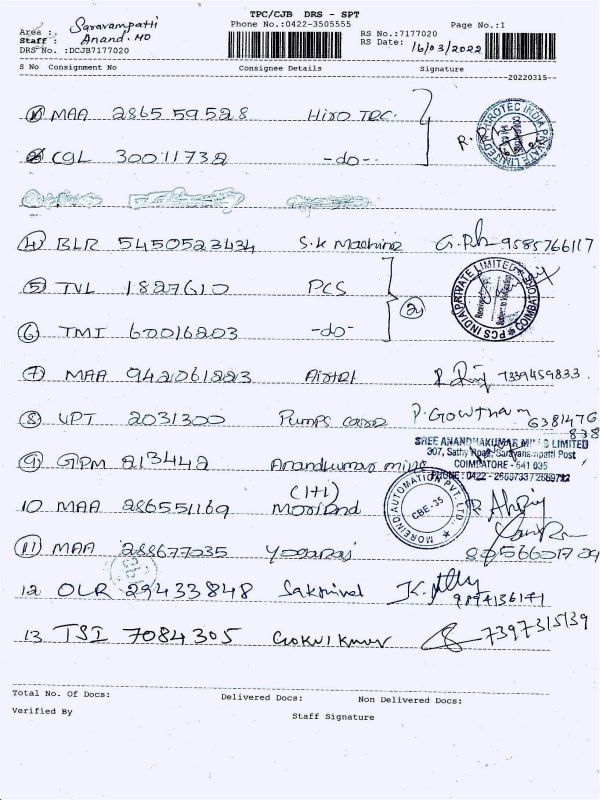 TPC/CJB DRS - SPT
Area : Saravampatti Phone No.:0422-3505555 Page No.:1
Staff : Anand. MD RS No.:7177020
DRS No :DCJB7177020 RS Date: 16/03/2022
S No Consignment No Consignee Details Signature
20220315
1 MAA 286559528 Hiro TEC.
2 CGL 30011732 -do-
4 BLR 5450523434 S.K Machine 9585766117
5 TVL 1827610 PCS
PCS INDIA PRIVATE LIMITED COIMBATORE
2
6 TMI 60016203 -do-
7 MAA 942061223 Airtel 7339459833.
8 VPT 2031300 Pumps case P. Gowtham
SREE ANANDHAKUMAR MILLS LIMITED
307, Sathy Road, Saravanampatti Post
COIMBATORE - 641 035
9 GPM 213442 Anandkumar mills
(1+1)
10 MAA 286551169
MOREIND AUTOMATION PVT. LTD CBE-35
11 MAA 288677035 Yogaraj
12 OLR 29433848 Sakthivel
13 TSI 7084305 Gokulkumar 7397315139
Total No. Of Docs: Delivered Docs: Non Delivered Docs:
Verified By Staff Signature